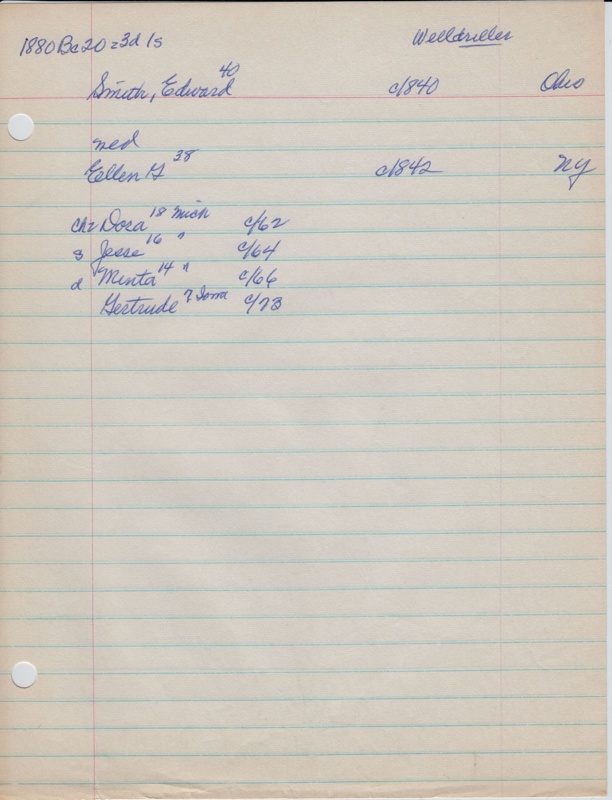 1880 Bc 20 - 3d 1s Welldriller
Smith, Edward 40 c/1840 Ohio
med
Ellen G 38 c/1842 NY
ch 2 Dora 18 Mich c/62
s Jesse 16 " c/64
d Minta 14 " c/66
Gertrude 7 Iowa c/73